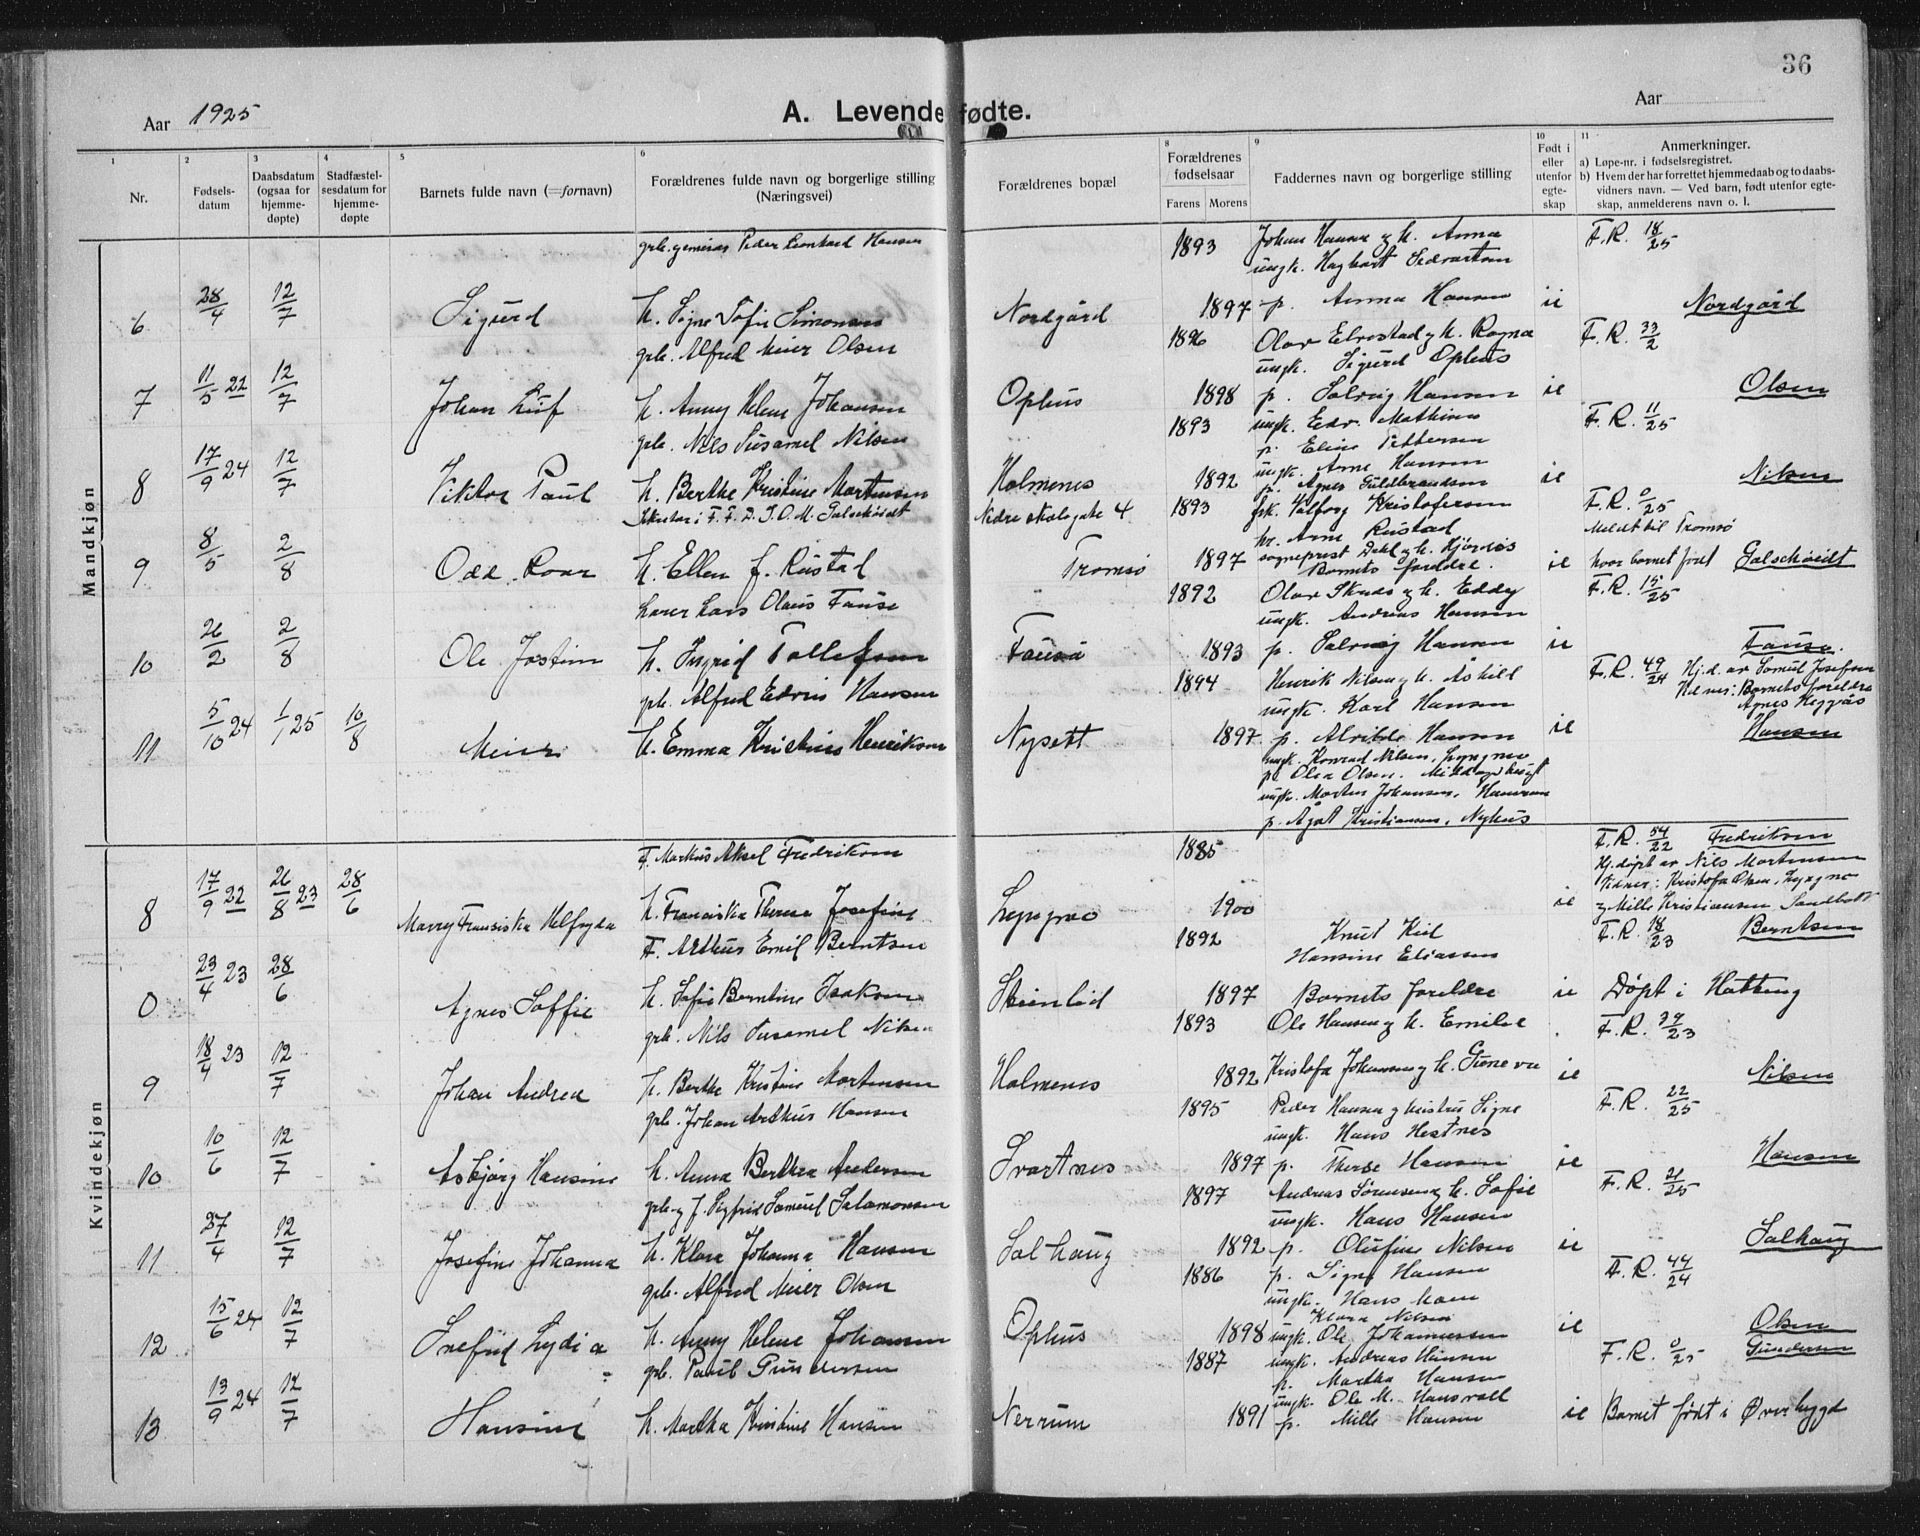 36
Aar 1925
A. Levendefødte.
Aar
1
2
3
4
5
6
8
9
10
11
Nr.
Fødsels-
datum
Daabsdatum
(ogsaa for
hjemme-
døpte)
Stadfæstel-
sesdatum for
hjemme-
døpte
Barnets fulde navn (=fornavn)
Forældrenes fulde navn og borgerlige stilling
(Næringsvei)
Forældrenes bopæl
Forældrenes
fødselsaar
Farens Morens
Faddernes navn og borgerlige stilling
Født i
eller
utenfor
egte-
skap
Anmerkninger.
a) Løpe-nr. i fødselsregistret.
b) Hvem der har forrettet hjemmedaab og to daabs-
vidners navn. — Ved barn, født utenfor egte-
skap, anmelderens navn o. l.
Mandkjøn
Peder Leonhard Hansen 1893 Johan Hansen g h. Anna F.R. 18/25
ungk. Hagbart
6 28/4 12/7 Sigurd h. Signe Sofie Simonsen Nordgård 1897 p. Anna Hansen ie Nordgård
grb. Alfred Meier Olsen 1896 Olav Elvestad g h. Ragna F.R. 33/2
ungk. Sigurd Ophus
7 11/5 22 12/7 Johan Leif h. Anny Helene Johansen Ophus 1898 p. Solveig Hansen ie Olsen
grb. Nils Susamel Nilsen 1893 ungk. Edv. Mathisen F.R. 11/25
p. Eline Pettersen
ungk. Arne Hansen
8 17/9 24 12/7 Viktor Paul h. Berthe Kristine Martinsen Holmenes 1892 p. Agnes Guldbrandsen ie Nilsen
Sekretær i F.F.D.J.O.M. Galschiødt Nedre skolegate 4 1893 frk. Valborg Kristofersen F.R. 0/25
hr. Arne Rustad Meldt til Tromsø
9 8/5 2/8 Odd Roar h. Ellen f. Rustad Tromsø 1897 sogneprest Dahl g h. Hjørnes ie hvor barnet født Galschiødt
Barnets foreldre.
Lærer Lars Olaus Fause 1892 Olav Skuds g h. Eddy F.R. 15/25
ungk. Andreas Hansen
10 26/2 2/8 Ole Jostein h. Ingrid Tollefsen Fauså 1893 p. Solveig Hansen ie Fause.
grb. Alfred Edvin Hansen 1894 Henrik Nilsen g h. Åshild F.R. 49/24 Hj.d. av Samuel Josefsen
ungk. Karl Hansen Vidner: Barnets foreldre
Agnes Heggås
11 5/10 24 1/1 25 10/8 Meier h. Emma Kristine Henriksen Nysett 1897 p. Alvilde Hansen ie Hansen
ungk. Konrad Nilsen, Lyngmo
p. Olea Olsen.
ungk. Morten Johansen,
p. Ågot Kristiansen, Nyhus
Kvindekjøn
F. Markus Aksel Fredriksen 1885 F.R. 54/22 Fredriksen
Hj.døpt av Nils Mortensen
Vidner: Kristofer Olsen, Lyngmo
8 17/9 22 26/8 23 28/6 Marry Fransiska Helfryda h. Franciska Therese Josefine Lyngmo 1900 ie g Mille Kristiansen, Sandbott
F. Arthur Emil Berntsen 1892 Knut Kiil F.R. 18/23 Berntsen
Hansine Eliassen
0 23/4 23 28/6 Agnes Soffie h. Sofie Berntine Isaksen Steinlid 1897 Barnets foreldre ie Døpt i Hatteng
grb. Nils Susamel Nilsen 1893 Ole Hansen g h. Emilie F.R. 39/23
9 18/4 23 12/7 Johan Andrea h. Berthe Kristine Martinsen Holmenes 1892 Kristofer Johannes g h. ie Nilsen
grb. Johan Arthur Hansen 1895 Peder Hansen g hustru Signe F.R. 22/25
ungk. Hans Hestnes
10 10/6 12/7 Asbjørg Hansine h. Anna Berthea Andersen Svartnes 1897 p. Therese Hansen ie Hansen
grb. g f. Sigfrid Samuel Salamonsen 1897 Andreas Sørensen g h. Sofie F.R. 21/25
ungk. Hans Hansen
11 27/4 12/7 Josefine Johanna h. Klara Johanna Hansen Solhaug 1892 p. Olufine Nilsen ie Solhaug
grb. Alfred Meier Olsen 1886 p. Signe Hansen F.R. 44/24
ungk. Hans
Klara Nilsen
12 15/6 24 12/7 Snefrid Lydia h. Anny Helene Johansen Ophus 1898 ungk. Ole Johannessen ie Olsen
grb. Paul Gundersen 1887 ungk. Andreas Hansen F.R. 0/25 Gundersen
p. Martha Hansen
ungk. Ole M. Hansvoll
13 13/9 24 12/7 Hansine h. Martha Kristine Hansen Nerrum 1891 p. Mille Hansen ie Barnet født i Øverbygd